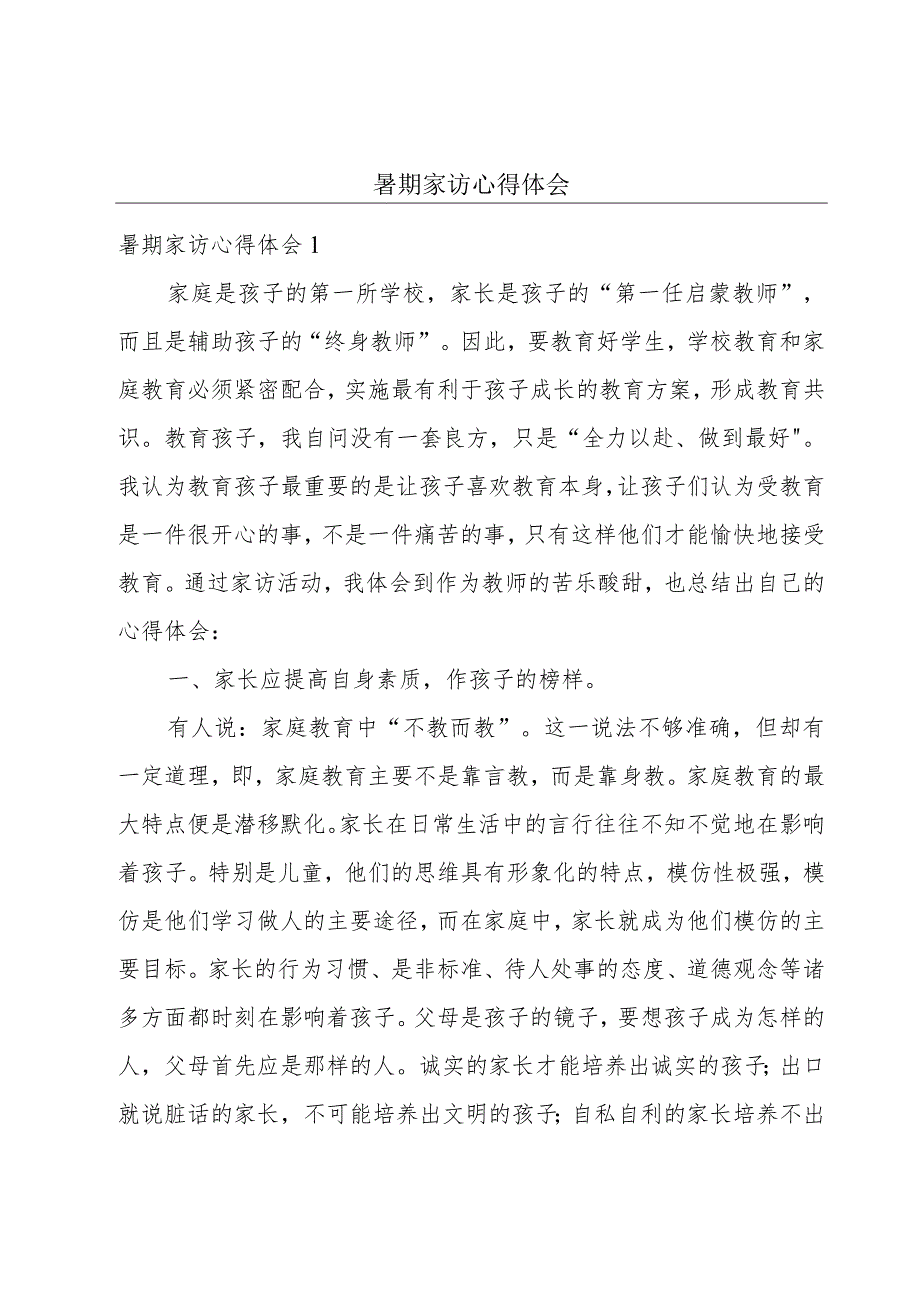 暑期家访心得体会
暑期家访心得体会1
家庭是孩子的第一所学校，家长是孩子的“第一任启蒙教师”，
而且是辅助孩子的“终身教师”。因此，要教育好学生，学校教育和家
庭教育必须紧密配合，实施最有利于孩子成长的教育方案，形成教育共
识。教育孩子，我自问没有一套良方，只是“全力以赴、做到最好"。
我认为教育孩子最重要的是让孩子喜欢教育本身，让孩子们认为受教育
是一件很开心的事，不是一件痛苦的事，只有这样他们才能愉快地接受
教育。通过家访活动，我体会到作为教师的苦乐酸甜，也总结出自己的
心得体会：
一、家长应提高自身素质，作孩子的榜样。
有人说：家庭教育中“不教而教”。这一说法不够准确，但却有
一定道理，即，家庭教育主要不是靠言教，而是靠身教。家庭教育的最
大特点便是潜移默化。家长在日常生活中的言行往往不知不觉地在影响
着孩子。特别是儿童，他们的思维具有形象化的特点，模仿性极强，模
仿是他们学习做人的主要途径，而在家庭中，家长就成为他们模仿的主
要目标。家长的行为习惯、是非标准、待人处事的态度、道德观念等诸
多方面都时刻在影响着孩子。父母是孩子的镜子，要想孩子成为怎样的
人，父母首先应是那样的人。诚实的家长才能培养出诚实的孩子；出口
就说脏话的家长，不可能培养出文明的孩子；自私自利的家长培养不出